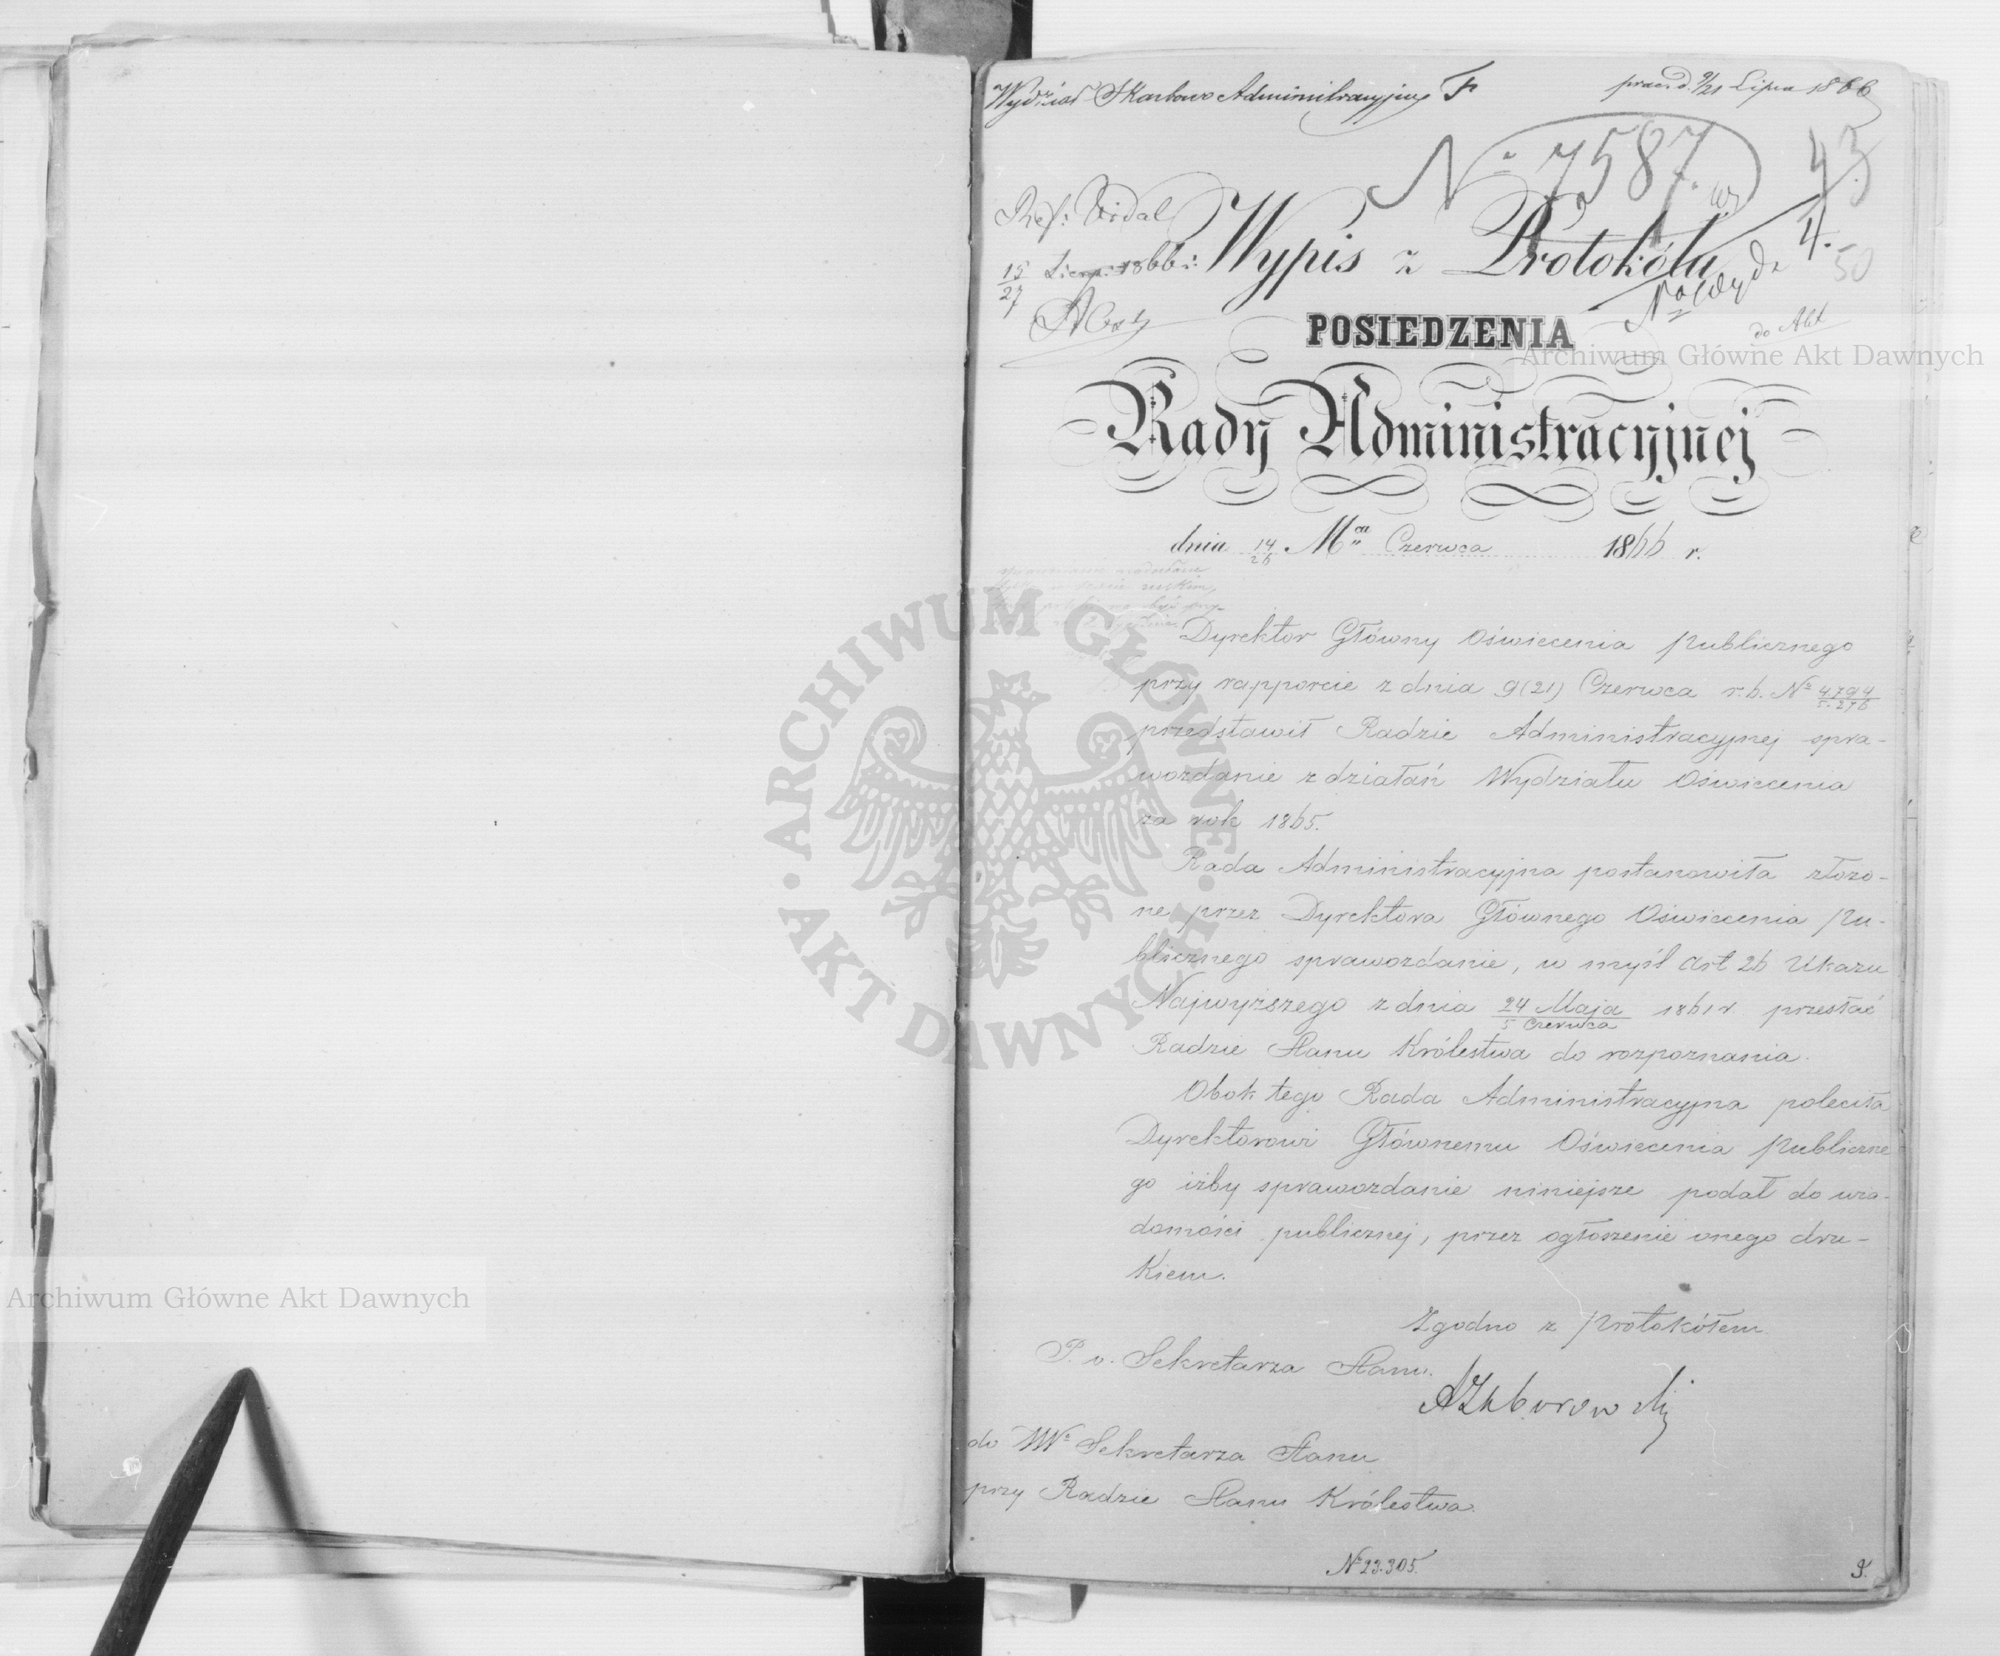 Wydział Skarbowo Administracyjny F
prac. d. 9/21 Lipca 1866
№ 7587
43
Ref: Vidal
15/27 1866 r.
Wypis z Protokółu
50
do Akt
POSIEDZENIA
Rady Administracyjnej
dnia 14/26 Mca Czerwca 1866 r.
Dyrektor Główny Oświecenia Publicznego
przy rapporcie z dnia 9(21) Czerwca r.b. № 4794/5.276
przedstawił Radzie Administracyjnej spra-
wozdanie z działań Wydziału Oświecenia
za rok 1865.
Rada Administracyjna postanowiła złożo-
ne przez Dyrektora Głównego Oświecenia Pu-
blicznego sprawozdanie, w myśl Art 26 Ukazu
Najwyższego z dnia 24 Maja/5 Czerwca 1861 r. przesłać
Radzie Stanu Królestwa do rozpoznania.
Obok tego Rada Administracyjna poleciła
Dyrektorowi Głównemu Oświecenia Publiczne
go iżby sprawozdanie niniejsze podał do wia-
domości publicznej, przez ogłoszenie onego dru-
kiem.
Zgodno z Protokółem
P. o. Sekretarza Stanu.
AZaborowski
do JW° Sekretarza Stanu
przy Radzie Stanu Królestwa.
№ 23.305.
9.
Archiwum Główne Akt Dawnych
ARCHIWUM GŁÓWNE AKT DAWNYCH
Archiwum Główne Akt Dawnych